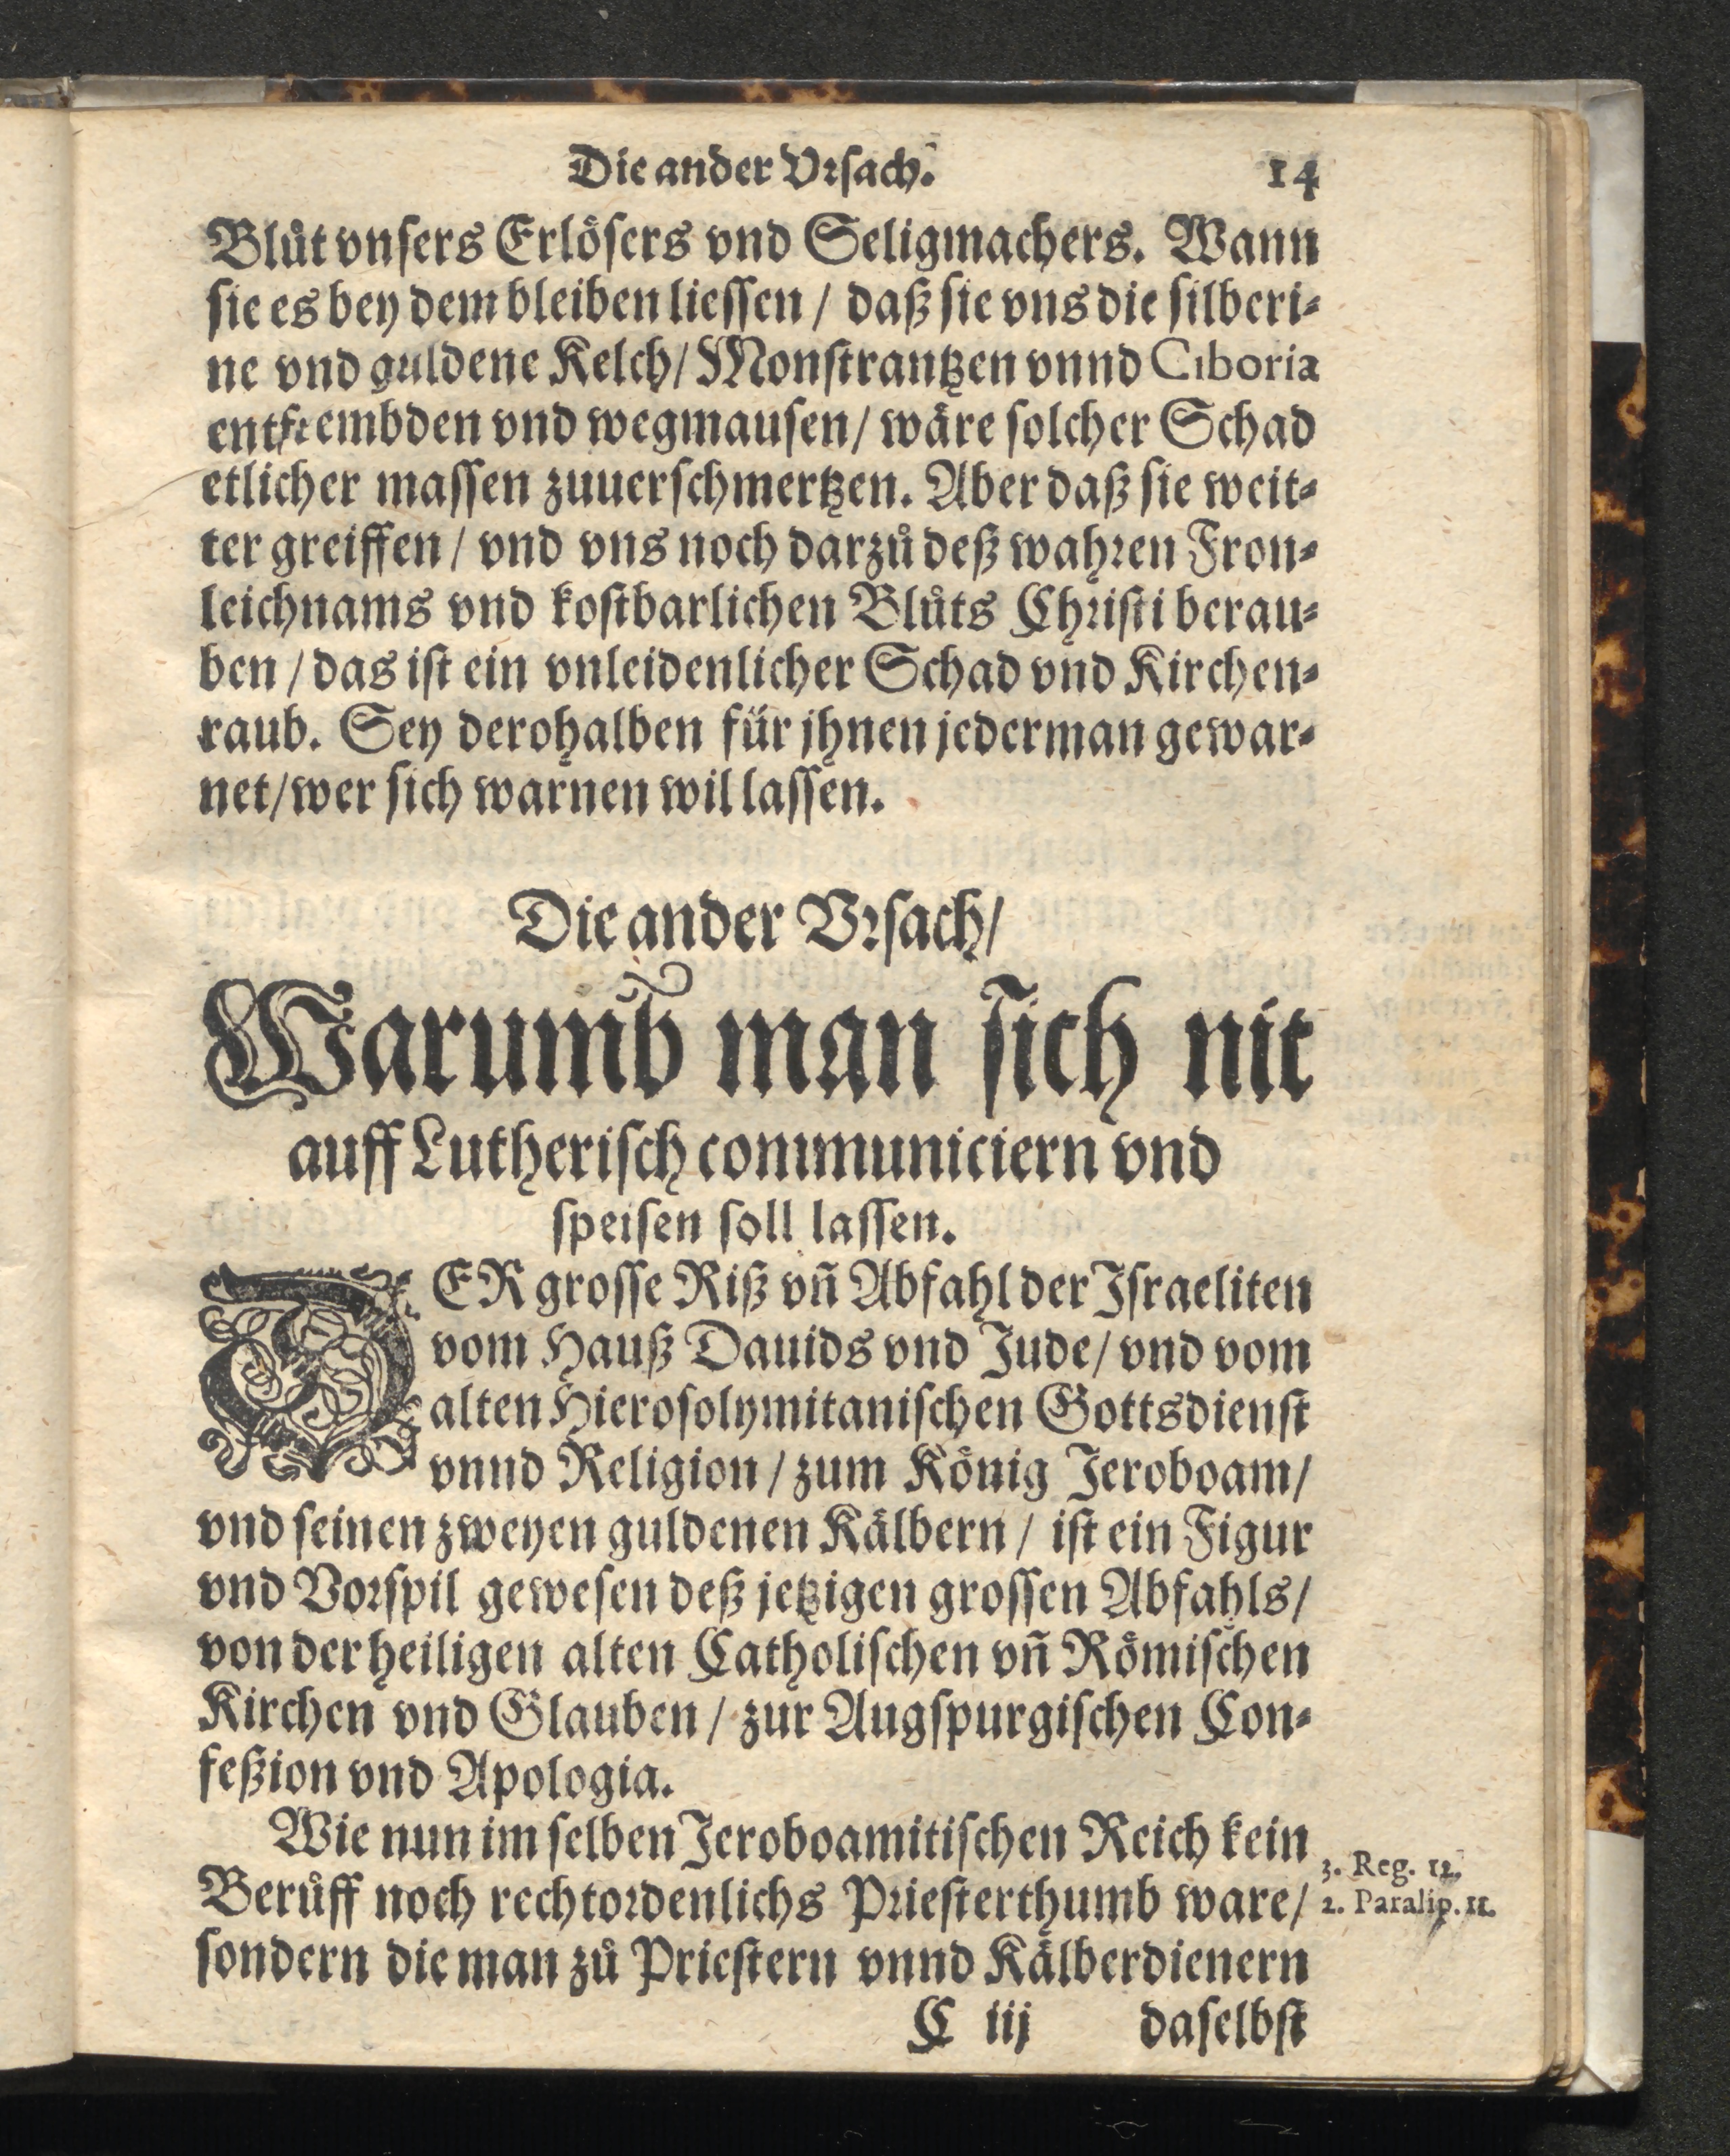 Die ander Vrſach. 14
Blůt vnſers Erlöſers vnd Seligmachers. Wann
ſie es bey dem bleiben lieſſen / daß ſie vns die ſilberi⸗
ne vnd guldene Kelch/ Monſtrantzen vnnd Ciboria
entfrembden vnd wegmauſen/ wäre ſolcher Schad
etlicher maſſen zuuerſchmertzen. Aber daß ſie weit⸗
ter greiffen / vnd vns noch darzů deß wahren Fron⸗
leichnams vnd koſtbarlichen Blůts Chriſti berau⸗
ben / das iſt ein vnleidenlicher Schad vnd Kirchen⸗
raub. Sey derohalben für jhnen jederman gewar⸗
net/wer ſich warnen wil laſſen.
Die ander Vrſach/
Warumb man ſich nit
auff Lutheriſch communiciern vnd
ſpeiſen ſoll laſſen.
DER groſſe Riß vñ Abfahl der Iſraeliten
vom Hauß Dauids vnd Jude/ vnd vom
alten Hieroſolymitaniſchen Gottsdienſt
vnnd Religion / zum König Jeroboam/
vnd ſeinen zweyen guldenen Kälbern / iſt ein Figur
vnd Vorſpil geweſen deß jetzigen groſſen Abfahls/
von der heiligen alten Catholiſchen vñ Römiſchen
Kirchen vnd Glauben / zur Augſpurgiſchen Con⸗
feßion vnd Apologia.
Wie nun im ſelben Jeroboamitiſchen Reich kein
3. Reg. 12.
Berůff noch rechtordenlichs Prieſterthumb ware/
2. Paralip. 11.
ſondern die man zů Prieſtern vnnd Kälberdienern
C iij daſelbſt